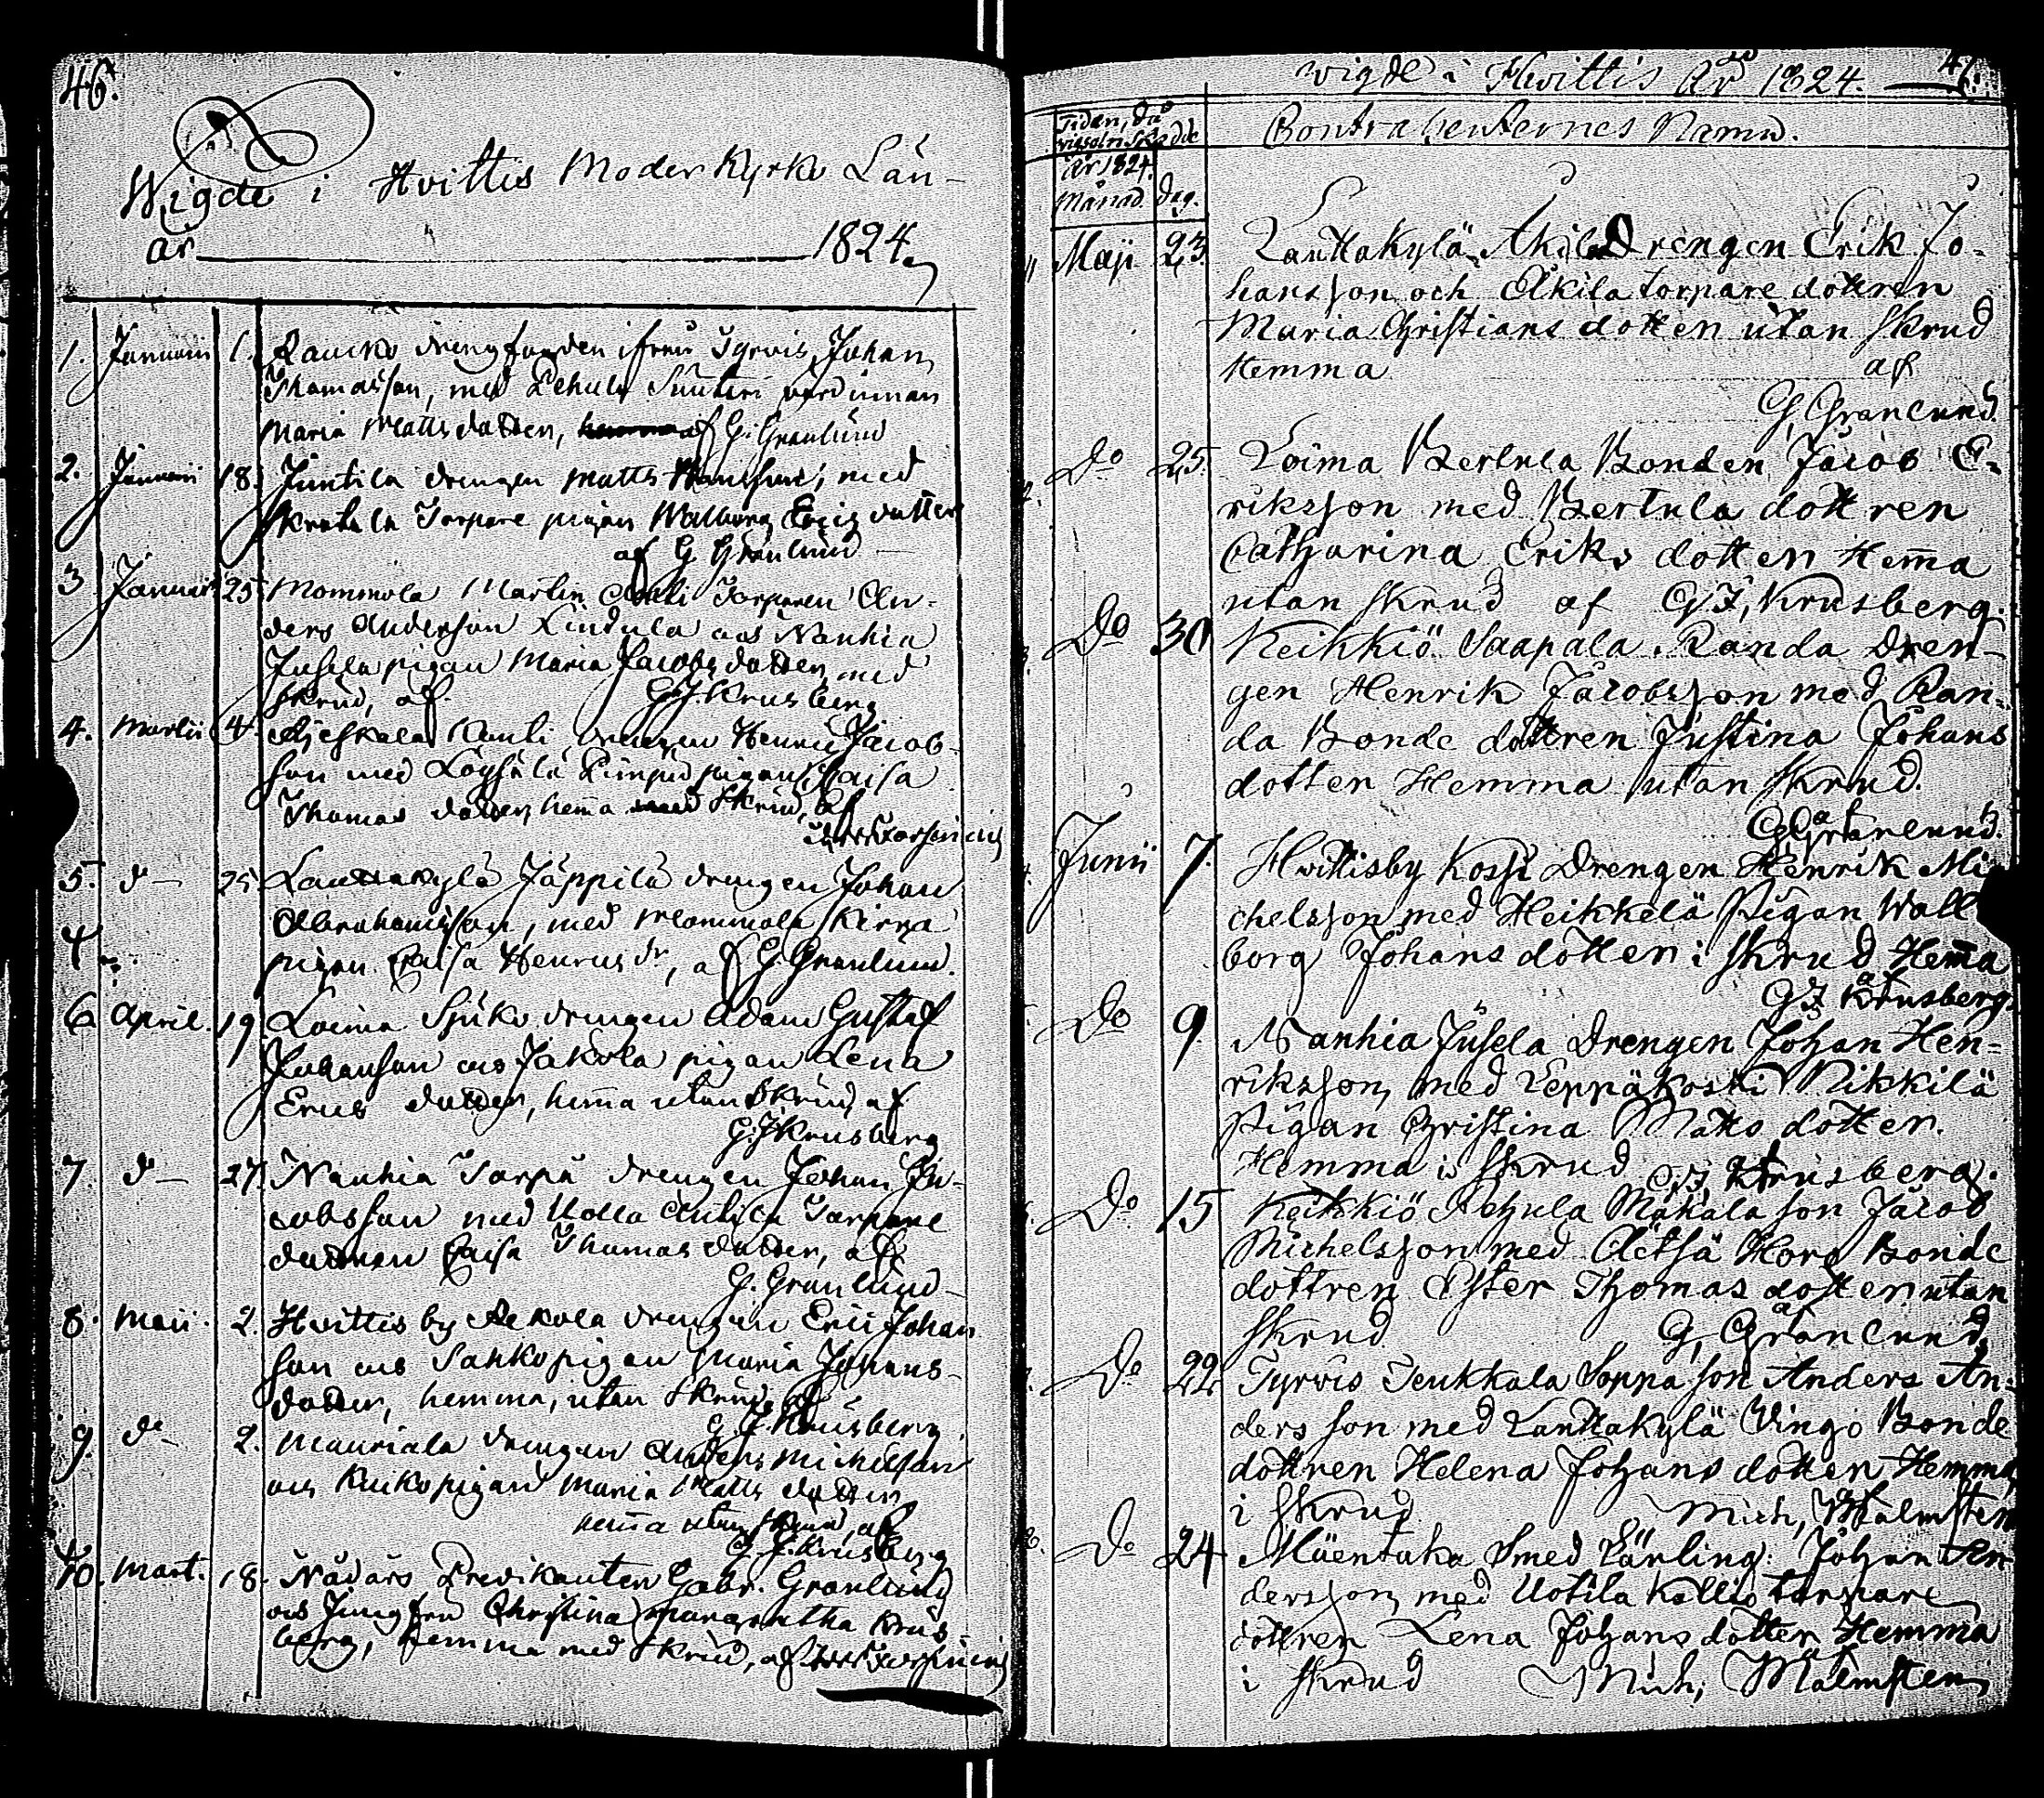 46.
Wigde i Hvittis Moder Kyrko Län-
år 1824.
1. Januarii 1. Raucko drengfogden ifrån Tyrvis Johan
Thomasson, med Suutari värdinnan
Maria Matts dotter, af G: Granlund
2. Januarii 18. Juntila drengen Matts med
Torpare pigan Walborg Ericz dotter
af G Granlund
3 Januarii 25 Mommola Martin Torparen An-
ders Anderson Lindula och Nanhia
Jusela pigan Maria Jacobs dotter, med
skrud, af G.J. Krusberg
4. Martii 4. Rauti drengen Henric Jacob-
son med pigan Caisa
Thomas dotter hema med skrud, af
5. do 25 Lauttakylä Jäppilä drengen Johan
Abrahamsson, med Mommola Kirra
pigan Caisa Henrics dr, af G Granlund.
6. April. 19 Loima Sjuko drengen Adam Gustaf
Johanson och Jakola pigan Lena
Erics dotter, hema utan skrud af
G.J Krusberg
7. do 27. Nanhia Torpa drengen Johan Ja-
cobsson med Uotila Torpare
dottren Caisa Thomas dotter, af
G. Granlund
8. Maii. 2. Hvittis by drengen Eric Johan
son och Sahko pigan Maria Johans-
dotter, hemma, utan skrud af
G J. Krusberg
9. do 2. Mauriala drengen Anders Michelson
och pigan Maria Matts dotter
hema utan skrud, af
G. J. Krusberg
10. Mart. 18. Nådårs Predikanten Gabr. Granlund
och Jungfru Christina Margaretha Krus-
berg, hemma med skrud, af
wigde i Hvittis År 1824. 47.
Tiden, då
vigseln skedde
År 1824.
Månad. dag.
Contrahenternes Namn.
11 Maji 23. Lauttakylä Äkilä Drengen Erik Jo-
hansson och Äkila torpare dottren
Maria Christians dotter utan skrud
Hemma af
G, Granlund.
Do 25. Loima Bertula Bonden Jacob E-
riksson med Bertula dottren
Catharina Eriks dotter Hema
utan skrud af G J, Krusberg.
Do 30 Keikkiö Saapala Randa Dren-
gen Henrik Jacobsson med Ran-
da Bonde dottren Justina Johans
dotter Hemma utan skrud.
af
G Granlund.
Junii 7. Hvittisby Kossi Drengen Henrik Mi-
chelsson med Heikkelä Pigan Wall
borg Johans dotter i skrud Hema
af
G J Krusberg.
Do 9. Nanhia Jusela Drengen Johan Hen-
riksson, med Leppäkoski Nikkilä
Pigan Christina Matts dotter.
Hemma i skrud af G J Krusberg.
Do 15 Keikkiö Rehula Makala son Jacob
Michelsson med Aetsä Horo Bonde
dottren Ester Thomas dotter utan
skrud af G, Granlund,
Do 22 Tyrvis Teukkala Soppa son Anders An-
ders son med Lauttakylä Vingo Bonde
dottren Helena Johans dotter Hemma
i skrud Mich, Malmsten
Do 24 Smed Lärling: Johan An-
dersson, med Uotila Kallio torpare
dottren Lena Johans dotter Hemma
i skrud af Mich, Malmsten